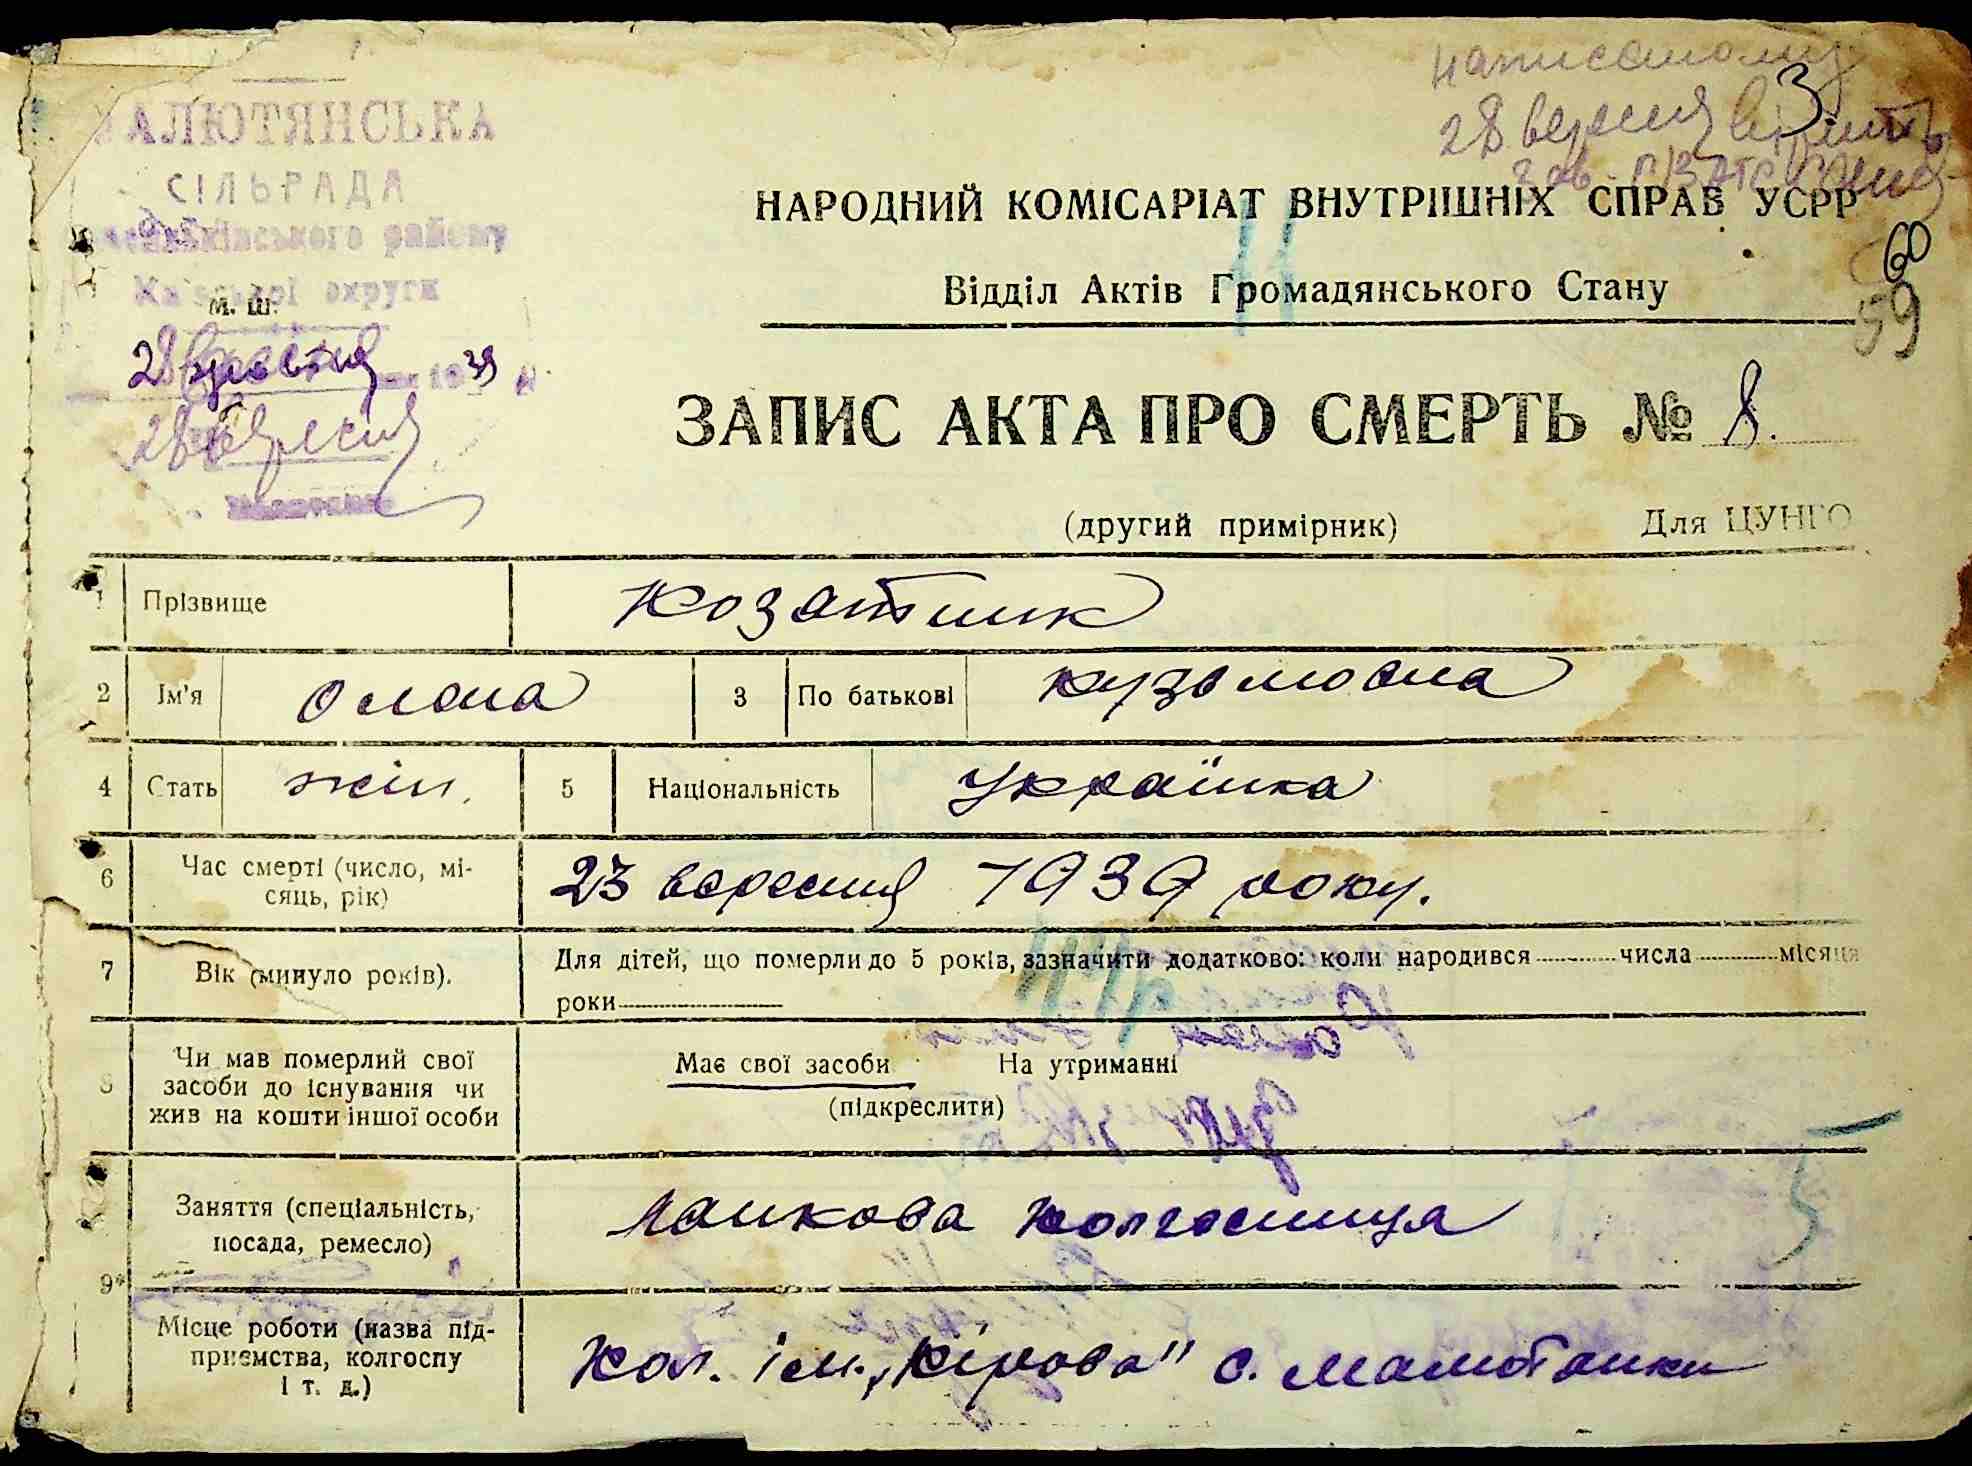 написаному
28 вересня вірить
3
АЛЮТЯНСЬКА
СІЛЬРАДА
району
округи
М. Ш.
28 вересня 1939
28 вересня
НАРОДНИЙ КОМІСАРІАТ ВНУТРІШНІХ СПРАВ УСРР
60
59
Відділ Актів Громадянського Стану
ЗАПИС АКТА ПРО СМЕРТЬ № 8.
(другий примірник) Для ЦУНГО
1 Прізвище Козатник
2 Ім'я Олена 3 По батькові Кузьмовна
4 Стать жін. 5 Національність Українка
6 Час смерті (число, мі-
сяць, рік) 23 вересня 1939 року.
7 Вік (минуло років). Для дітей, що померли до 5 років, зазначити додатково: коли народився числа місяця
роки
8 Чи мав померлий свої
засоби до існування чи
жив на кошти іншої особи
Має свої засоби На утриманні
(підкреслити)
9* Заняття (спеціальність,
посада, ремесло) Ланкова колгосниця
Місце роботи (назва під-
приємства, колгоспу
і т. д.) Кол. ім. „Кірова" с. Малютянки